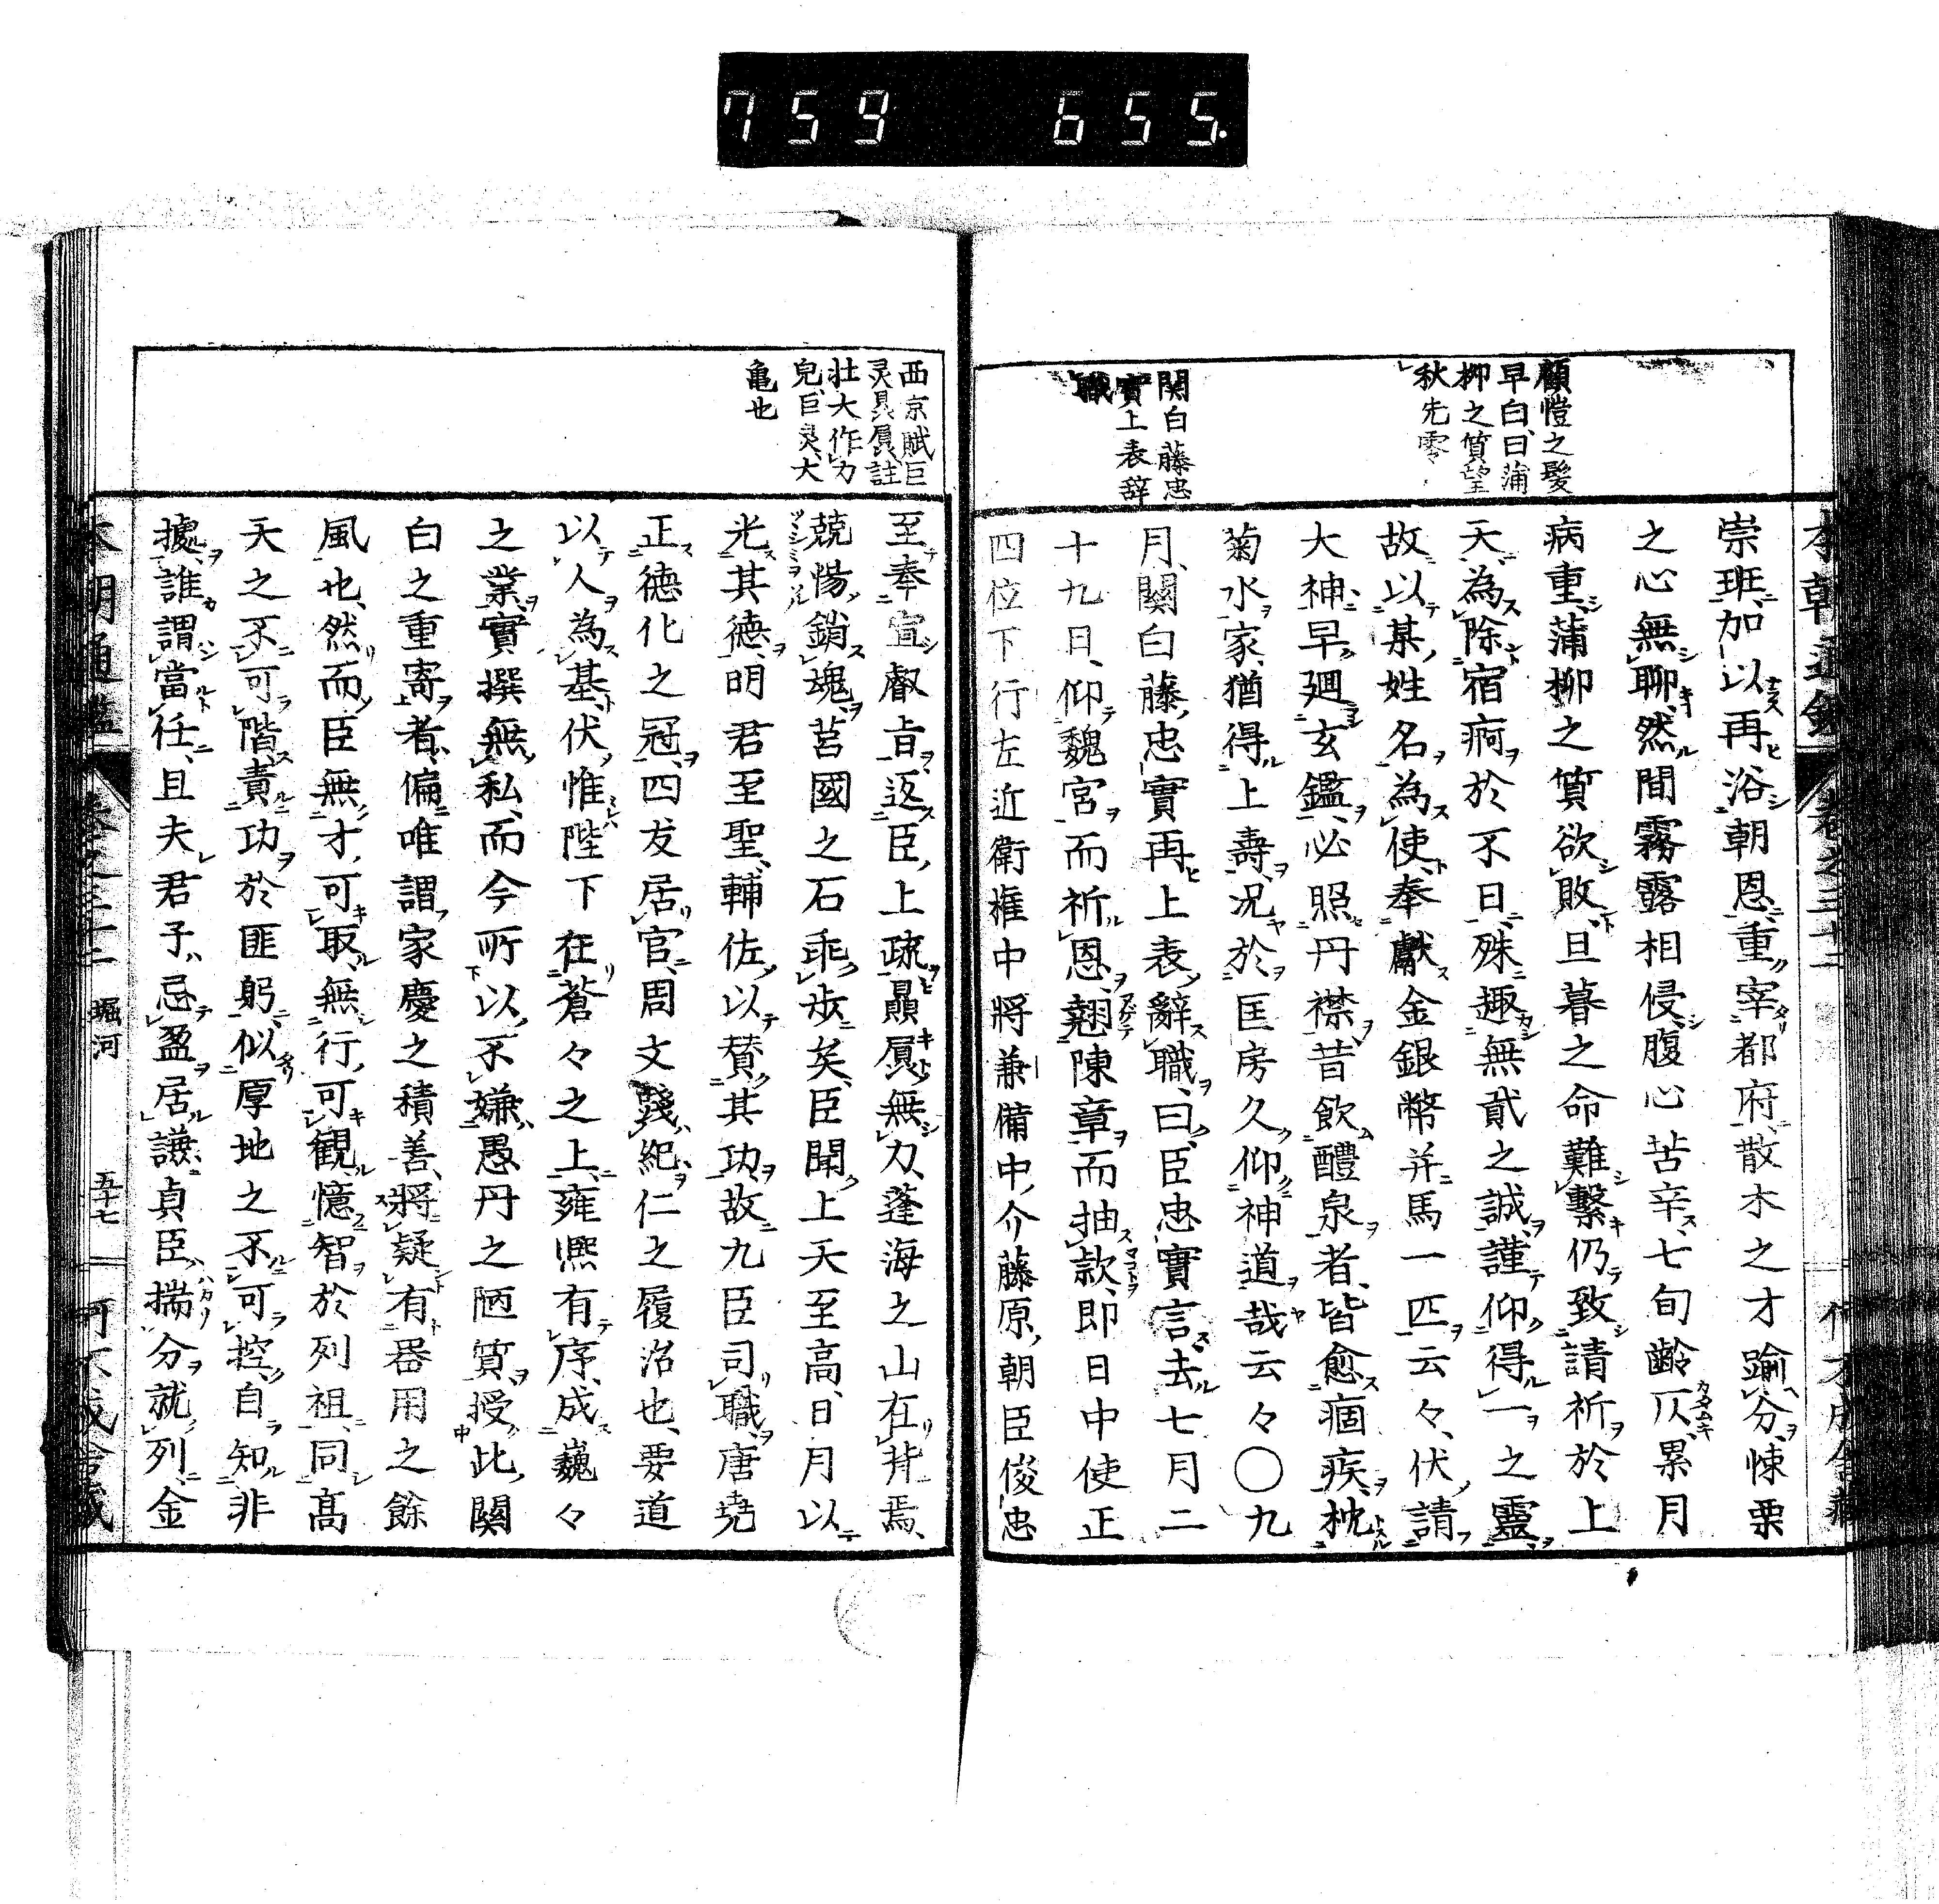 759 655.
顧愷之髪
早白、曰蒲
柳之質望
秋先零
関白藤忠
實上表辞
職
崇班、加以再浴朝恩、重宰都府、散木之才踰分、悚栗
之心無聊、然間霧露相侵、腹心苦辛、七旬齢仄、累月
病重、蒲柳之質欲敗、旦暮之命難繫、仍致請祈於上
天、為除宿痾於不日、殊趣無貳之誠、謹仰得一之靈、
故以某姓名為使、奉獻金銀幣并馬一匹云々、伏請
大神早廻玄鑑、必照丹襟、昔飲醴泉者、皆愈痼疾、枕
菊水家、猶得上壽、況於匡房久仰神道哉云々〇九
月、關白藤忠實再上表辭職、曰、臣忠實言、去七月二
十九日、仰魏宮而祈恩、翹陳章而抽款、即日中使正
四位下行左近衛権中將兼備中介藤原朝臣俊忠
西京賦巨
灵贔屓、註
壮大作力
皃、巨灵、大
亀也
至、奉宣叡旨、返臣上疏、贔屓無力、蓬海之山在背焉、
兢惕銷魂、莒國之石乖歩矣、臣聞、上天至高、日月以
光其德、明君至聖、輔佐以賛其功、故九臣司職、唐堯
正德化之冠、四友居官、周文殘紀仁之履、治也、要道
以人為基、伏惟陛下在蒼々之上、雍熙有序、成巍々
之業、實撰無私、而今所以不嫌愚丹之陋質、授此關
白之重寄者、偏唯謂家慶之積善、將疑有器用之餘
風也、然而臣無才可取、無行可観、憶智於列祖、同高
天之不可階、責功於匪躬、似厚地之不可控、自知非
據、誰謂當任、且夫君子忌盈居謙、貞臣揣分就列、金
本朝通鑑 卷之三十二 堀河 五十七